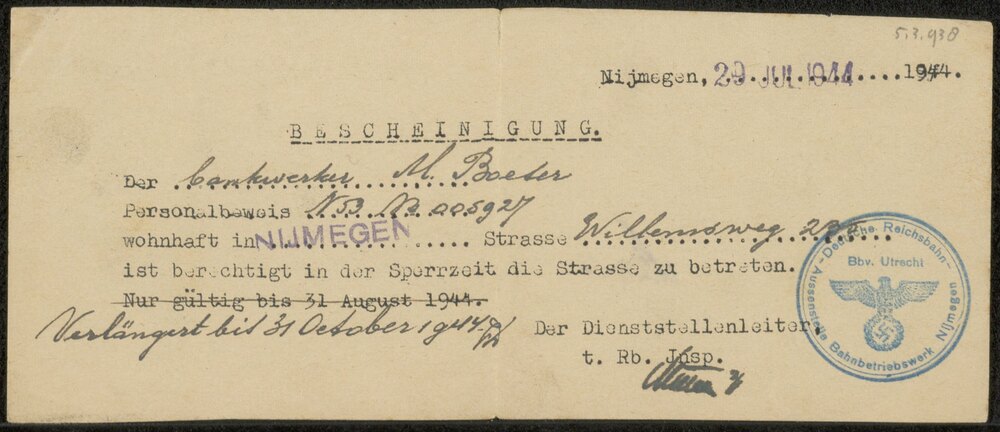 5.3.938
Nijmegen, 29 JUL 1944 1944.
BESCHEINIGUNG.
Der Bankwerker M. Boeter
Personalbeweis N53 No 005927
wohnhaft in NIJMEGEN Strasse Willemsweg 235
ist berechtigt in der Sperrzeit die Strasse zu betreten.
Nur gültig bis 31 August 1944.
Verlängert bis 31 October 1944
Der Dienststellenleiter
t. Rb. Jnsp.
Deutsche Reichsbahn
Bbv. Utrecht
Aussenstelle Bahnbetriebswerk Nijmegen